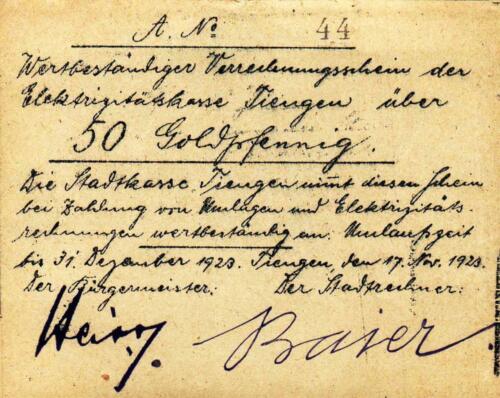 A. No 44
Wertbeständiger Verrechnungsschein der
Elektrizitätskasse Tiengen über
50 Goldpfennig.
Die Stadtkasse Tiengen nimmt diesen Schein
bei Zahlung von Umlagen und Elektrizitäts-
rechnungen wertbeständig an. Umlaufszeit
bis 31. Dezember 1923. Tiengen, den 17. Nov. 1923.
Der Bürgermeister: Der Stadtrechner:
Baier.